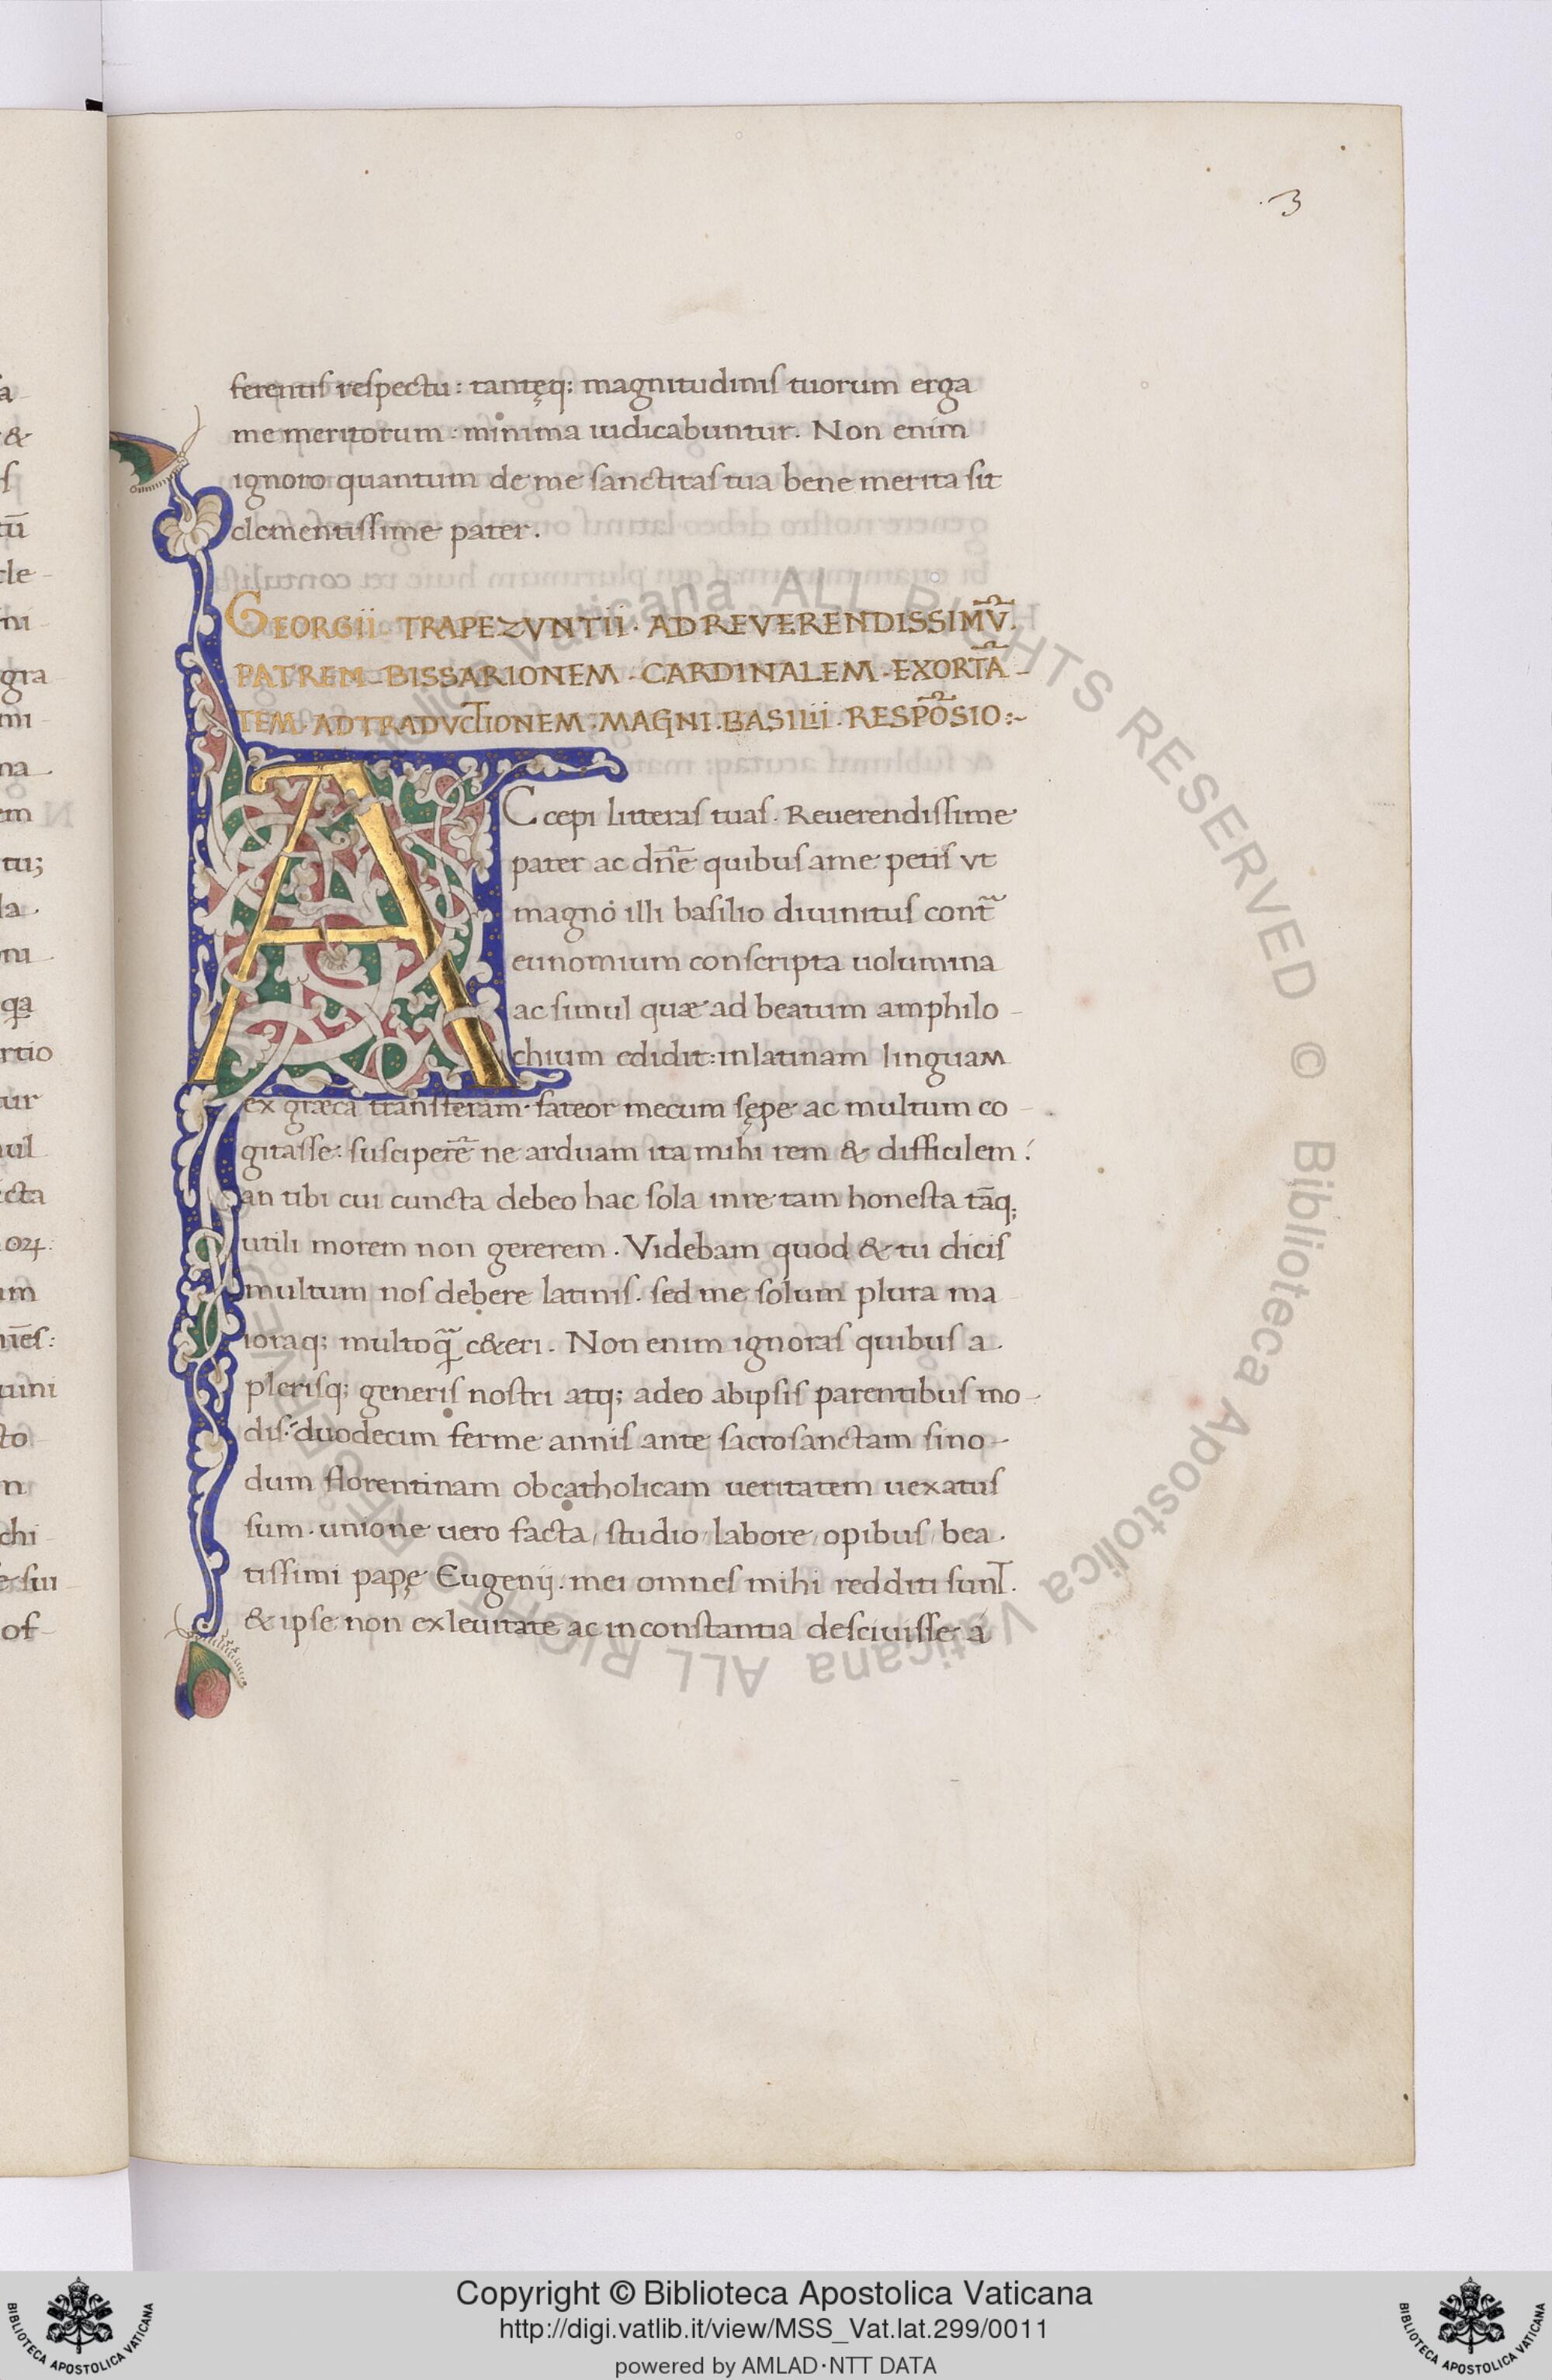 3
ferentis respectu: tantęq; magnitudinis tuorum erga
me meritorum: minima iudicabuntur. Non enim
ignoro quantum de me sanctitas tua bene merita sit
clementissime pater.
GEORGII· TRAPEZVNTII· AD REVERENDISSIMV̅.
PATREM· BISSARIONEM· CARDINALEM· EXORTA̅-
TEM· AD TRADVCTIONEM· MAGNI· BASILII· RESPO̅SIO:~
A
Ccepi litteras tuas. Reuerendissime
pater ac dn̅e quibus a me petis vt
magno illi basilio diuinitus cont̅
eunomium conscripta uolumina
ac simul quæ ad beatum amphilo-
chium edidit: in latinam linguam
ex græca transferam· fateor mecum sępe ac multum co-
gitasse: suscipere̅ ne arduam ita mihi rem & difficilem:
an tibi cui cuncta debeo hac sola in re tam honesta ta̅q;
utili morem non gererem. Videbam quod & tu dicis
multum nos debere latinis. sed me solum plura ma
ioraq; multo q̅ c&eri. Non enim ignoras quibus a
plerisq; generis nostri atq; adeo ab ipsis parentibus mo-
dis: duodecim ferme annis ante sacrosanctam sino-
dum florentinam ob catholicam ueritatem uexatus
sum· unione uero facta, studio, labore, opibus, bea.
tissimi papę Eugenij. mei omnes mihi redditi sunt.
& ipse non ex leuitate ac inconstantia desciuisse á
Copyright © Biblioteca Apostolica Vaticana
http://digi.vatlib.it/view/MSS_Vat.lat.299/0011
powered by AMLAD·NTT DATA